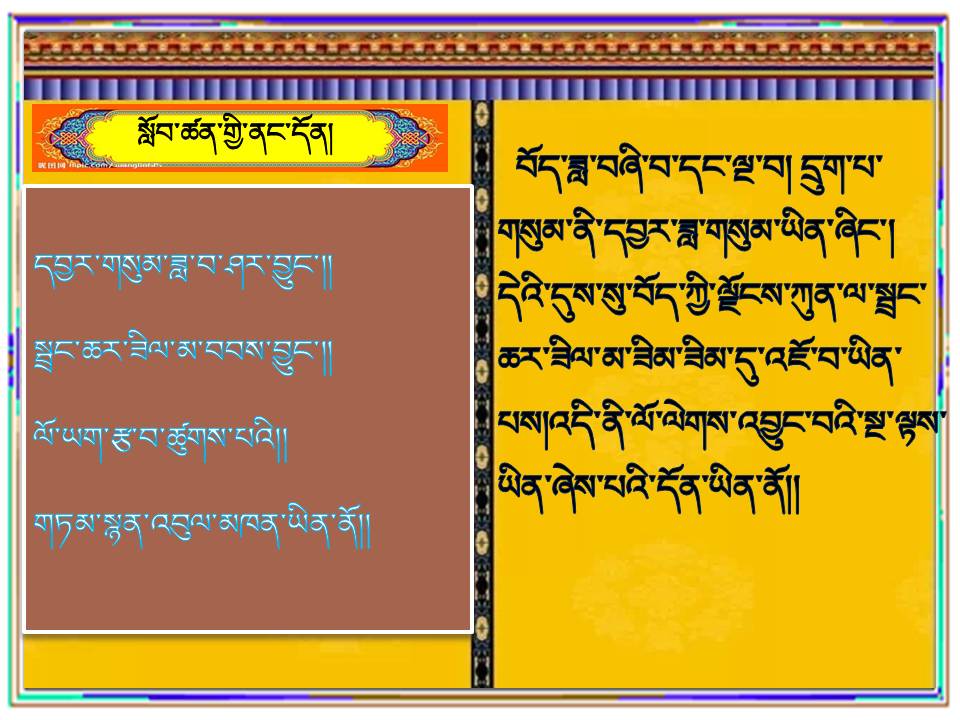 སློབ་ཚན་གྱི་ནང་དོན།
དབྱར་གསུམ་ཟླ་བ་ཤར་བྱུང་།།
སྦྲང་ཆར་ཟིལ་མ་བབས་བྱུང་།།
ལོ་ཡག་རྩ་བ་ཚུགས་པའི།།
གཏམ་སྙན་འབུལ་མཁན་ཡིན་ནོ།།
བོད་ཟླ་བཞི་བ་དང་ལྔ་བ། དྲུག་པ་
གསུམ་ནི་དབྱར་ཟླ་གསུམ་ཡིན་ཞིང་།
དེའི་དུས་སུ་བོད་ཀྱི་ལྗོངས་ཀུན་ལ་སྦྲང་
ཆར་ཟིལ་མ་ཟིམ་ཟིམ་དུ་འཇོ་བ་ཡིན་
པས།འདི་ནི་ལོ་ལེགས་འབྱུང་བའི་སྔ་ལྟས་
ཡིན་ཞེས་པའི་དོན་ཡིན་ནོ།།